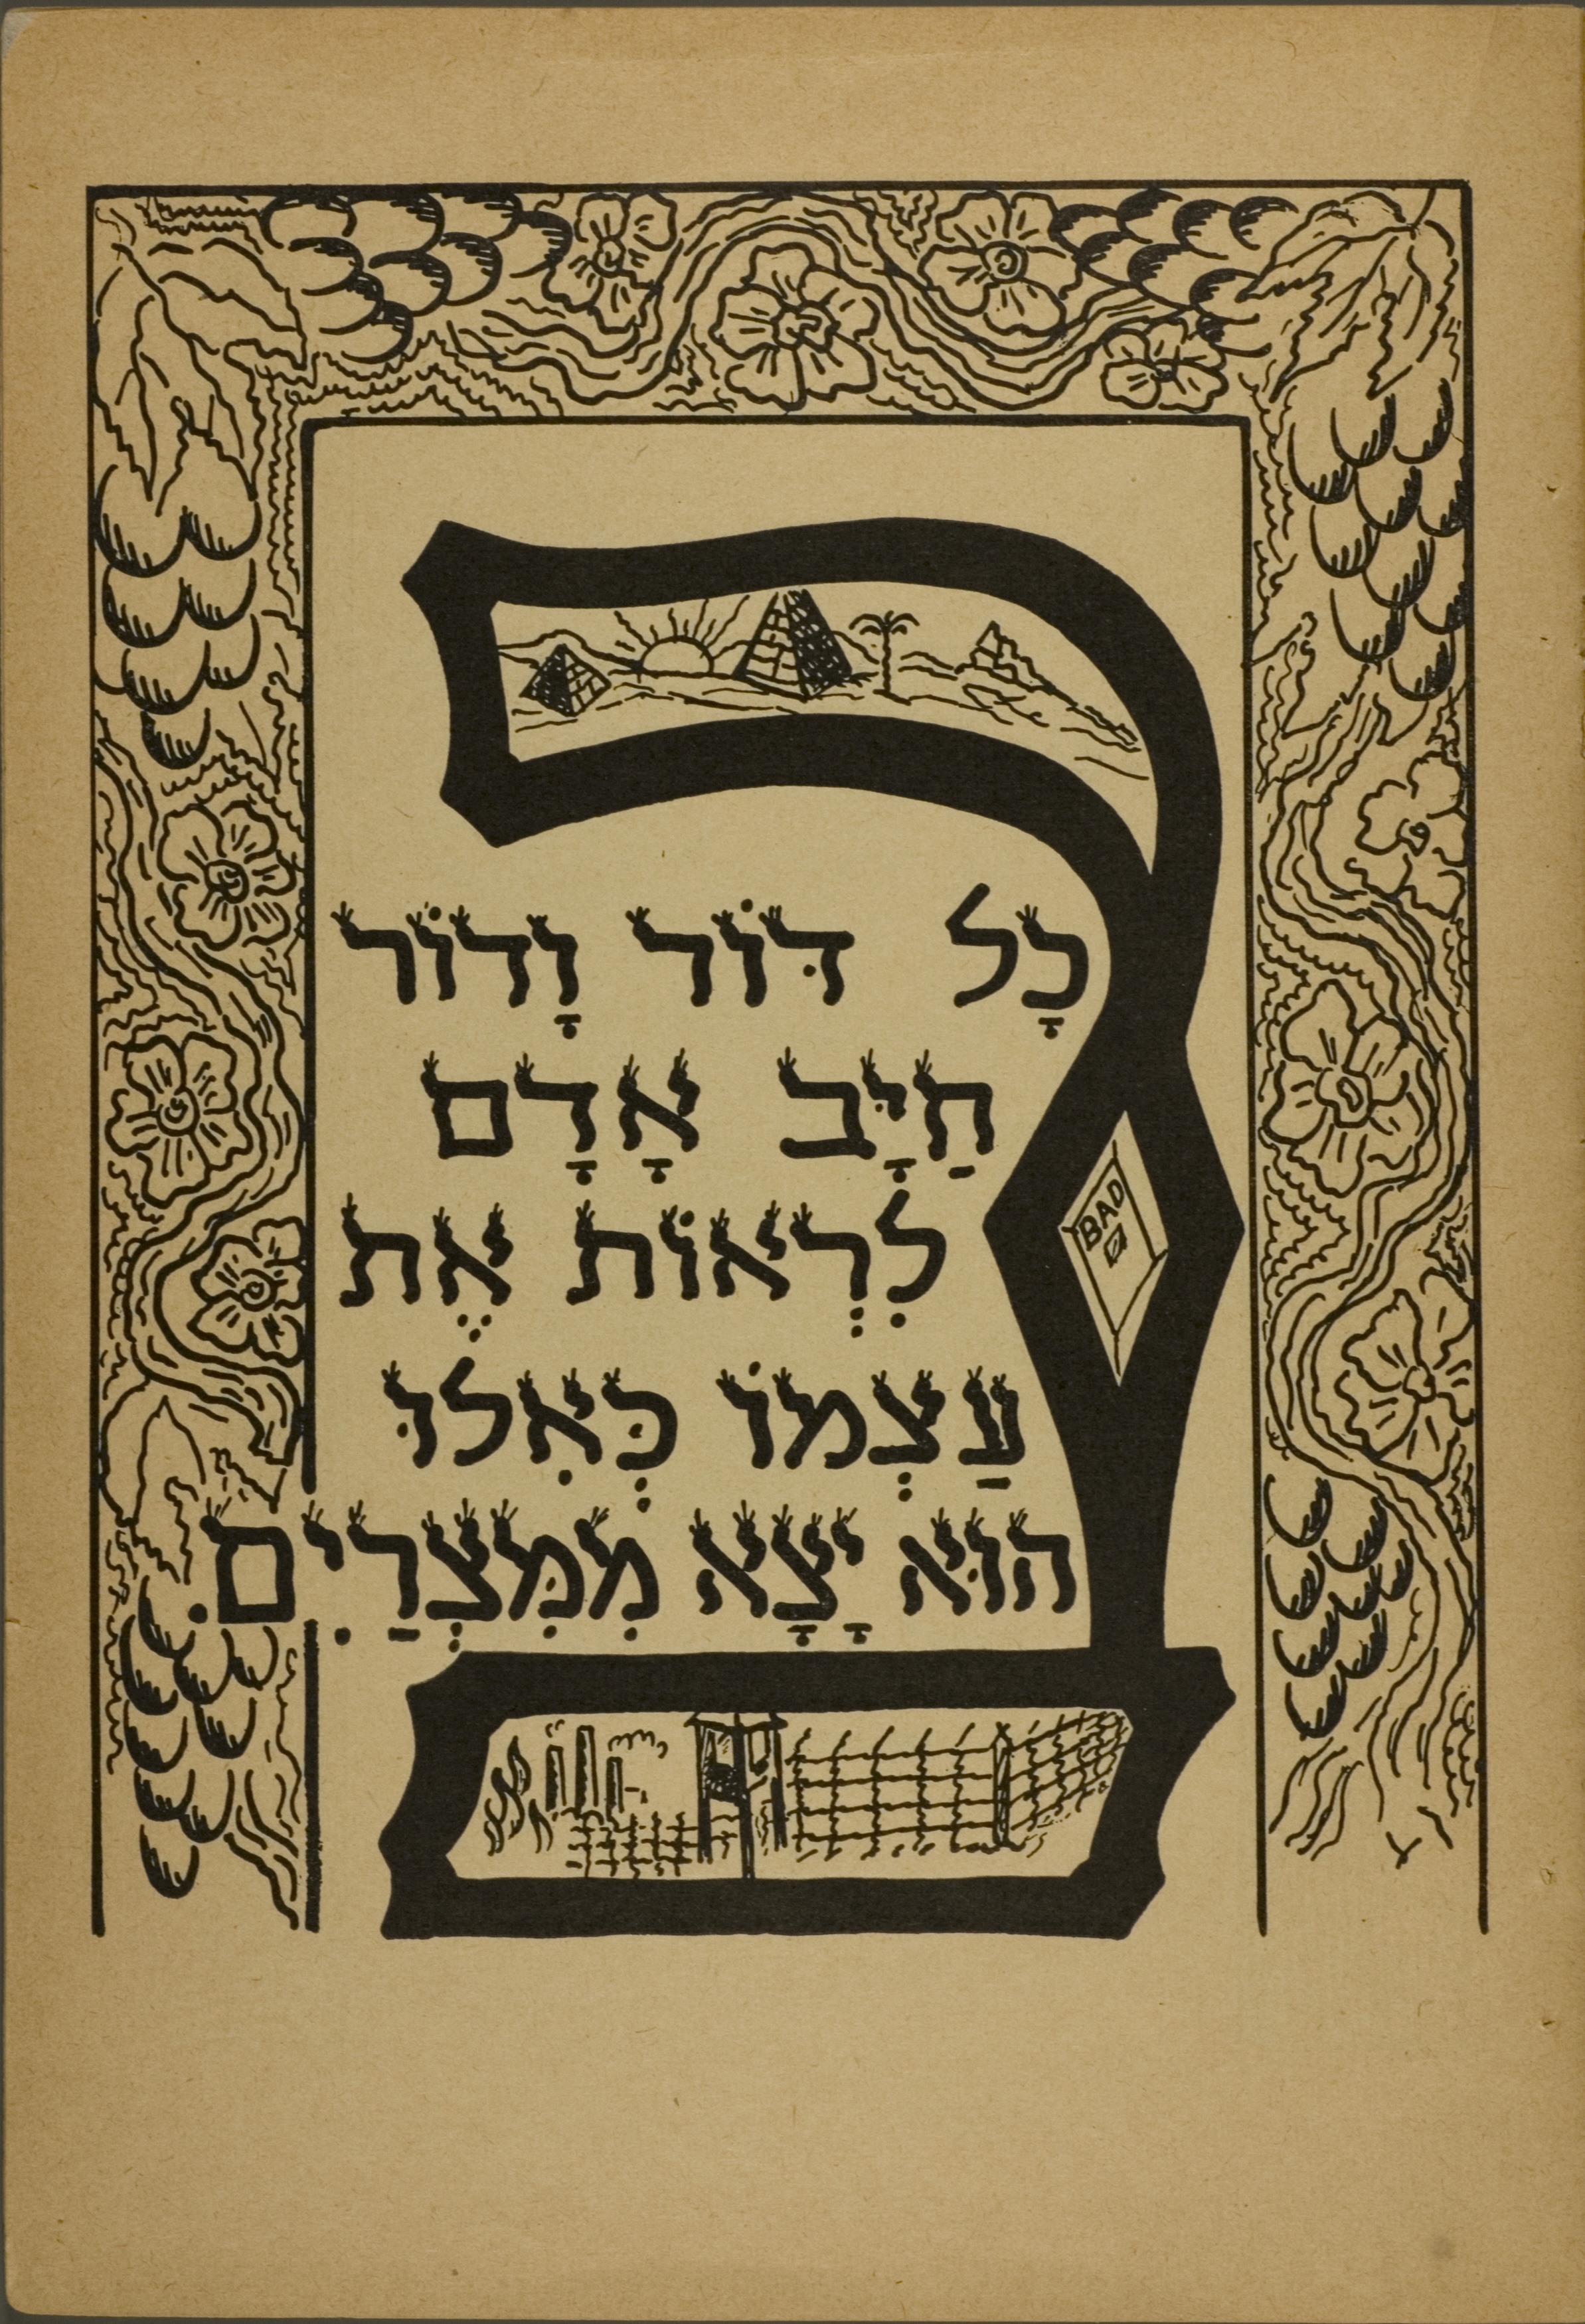 בכָל דּוֹר וָדוֹר
חַיָּב אָדָם
BAD
לִרְאוֹת אֶת
עַצְמוֹ כְּאִלוּ
הוּא יָצָא מִמִּצְרַיִם.